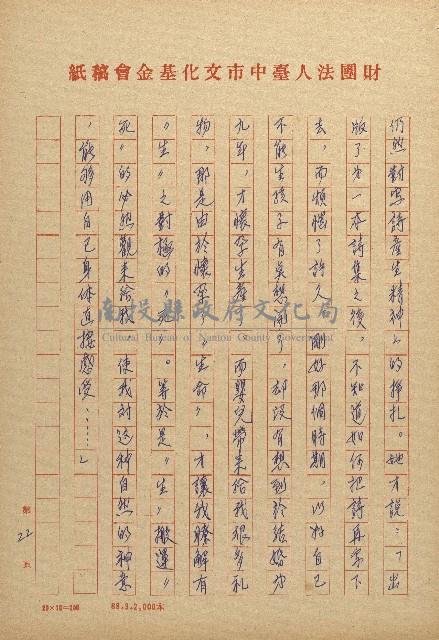 財團法人臺中市文化基金會稿紙
仍然對寫詩產生精神上的掙扎。她才說：「出
版了第一本詩集之後，不知道如何把詩再寫下
去，而煩惱了許久。剛好那個時期，以為自己
不能生孩子有異想開了，却沒有想到於結婚後
九年，才懷孕生產。而嬰兒帶來給我很多礼
物，那是由於懷孕「生命」，才讓我瞭解有
《生》之對極的《死》。等於是《生》搬運《
死》的必然觀來給我，使我對這种自然的神意
，能够用自己身体直接感受……」
南投縣政府文化局
Cultural Bureau of Nantou County Government
第22頁
20×10＝200
88.3.2,000本